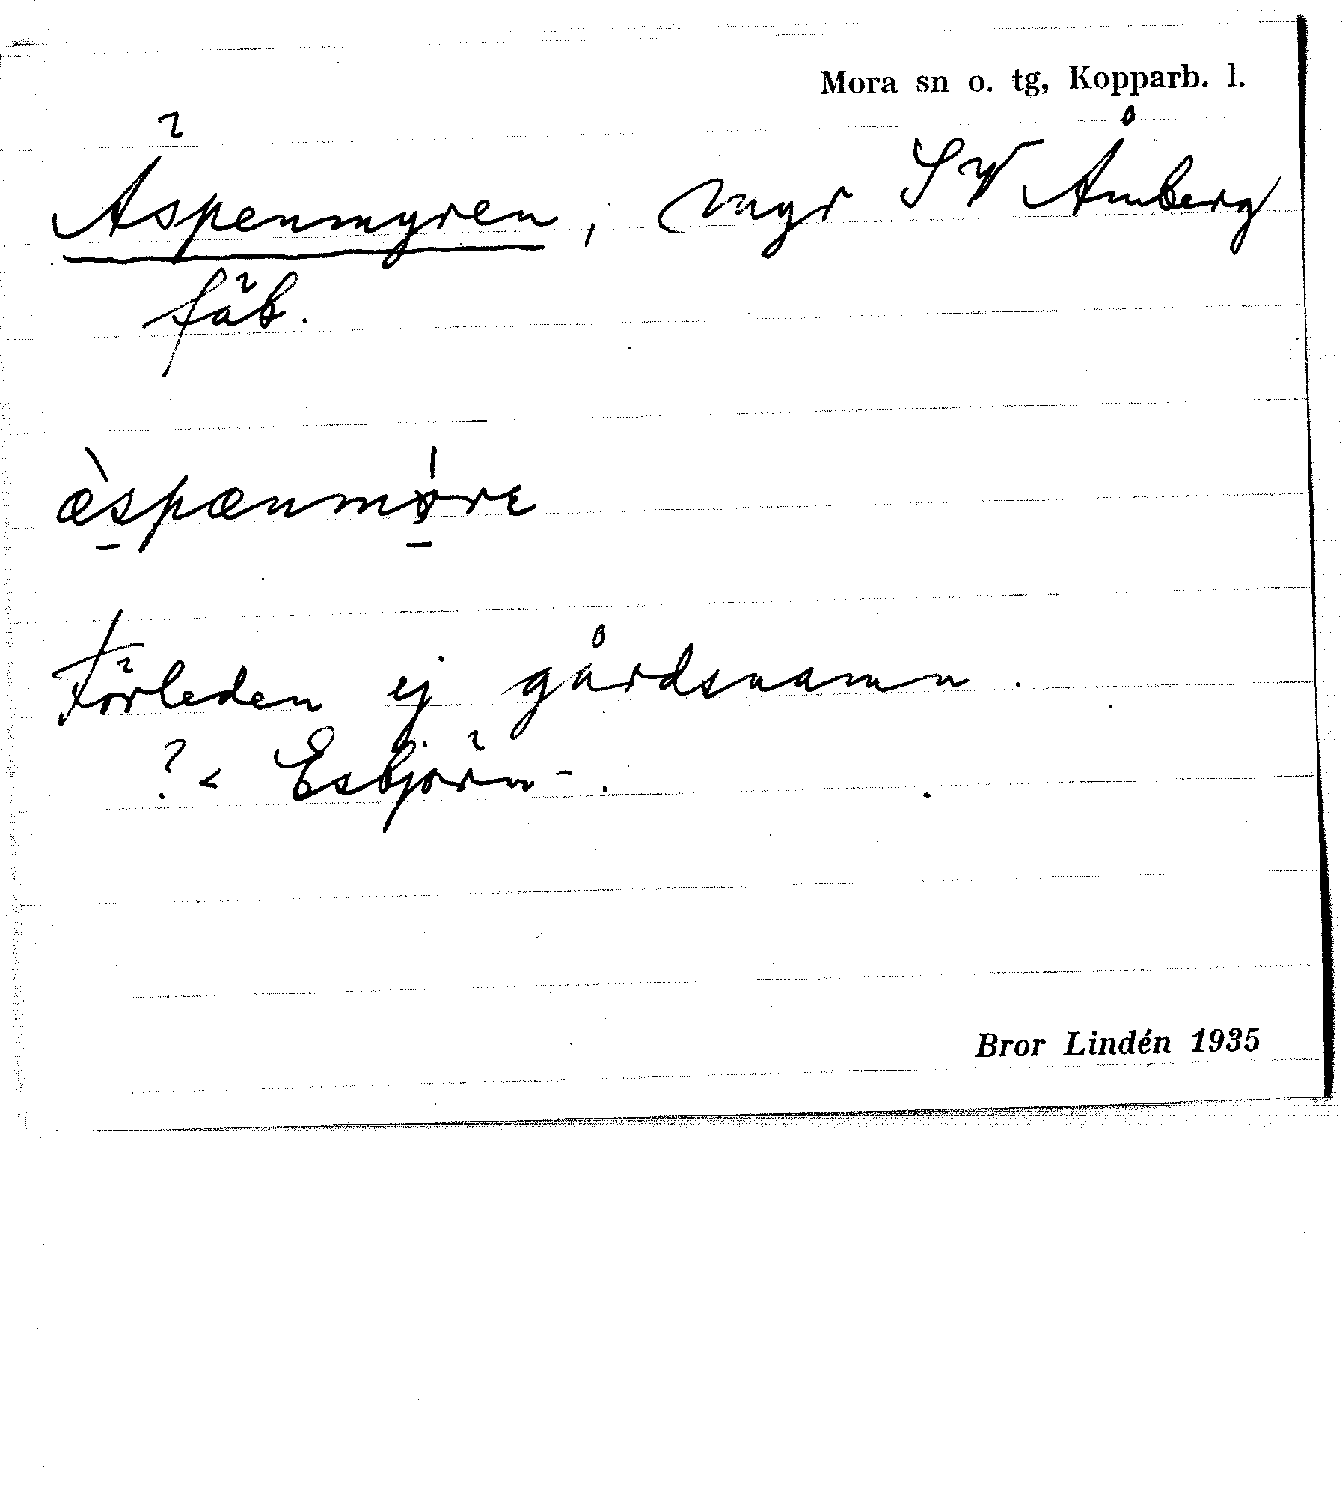 Mora sn o. tg, Kopparb. l.
Äspenmyren, myr SV Åmberg
fäb.
æ̀spænmø̀re
Förleden ej gårdsnamn.
? < Esbjörn-.
Bror Lindén 1935